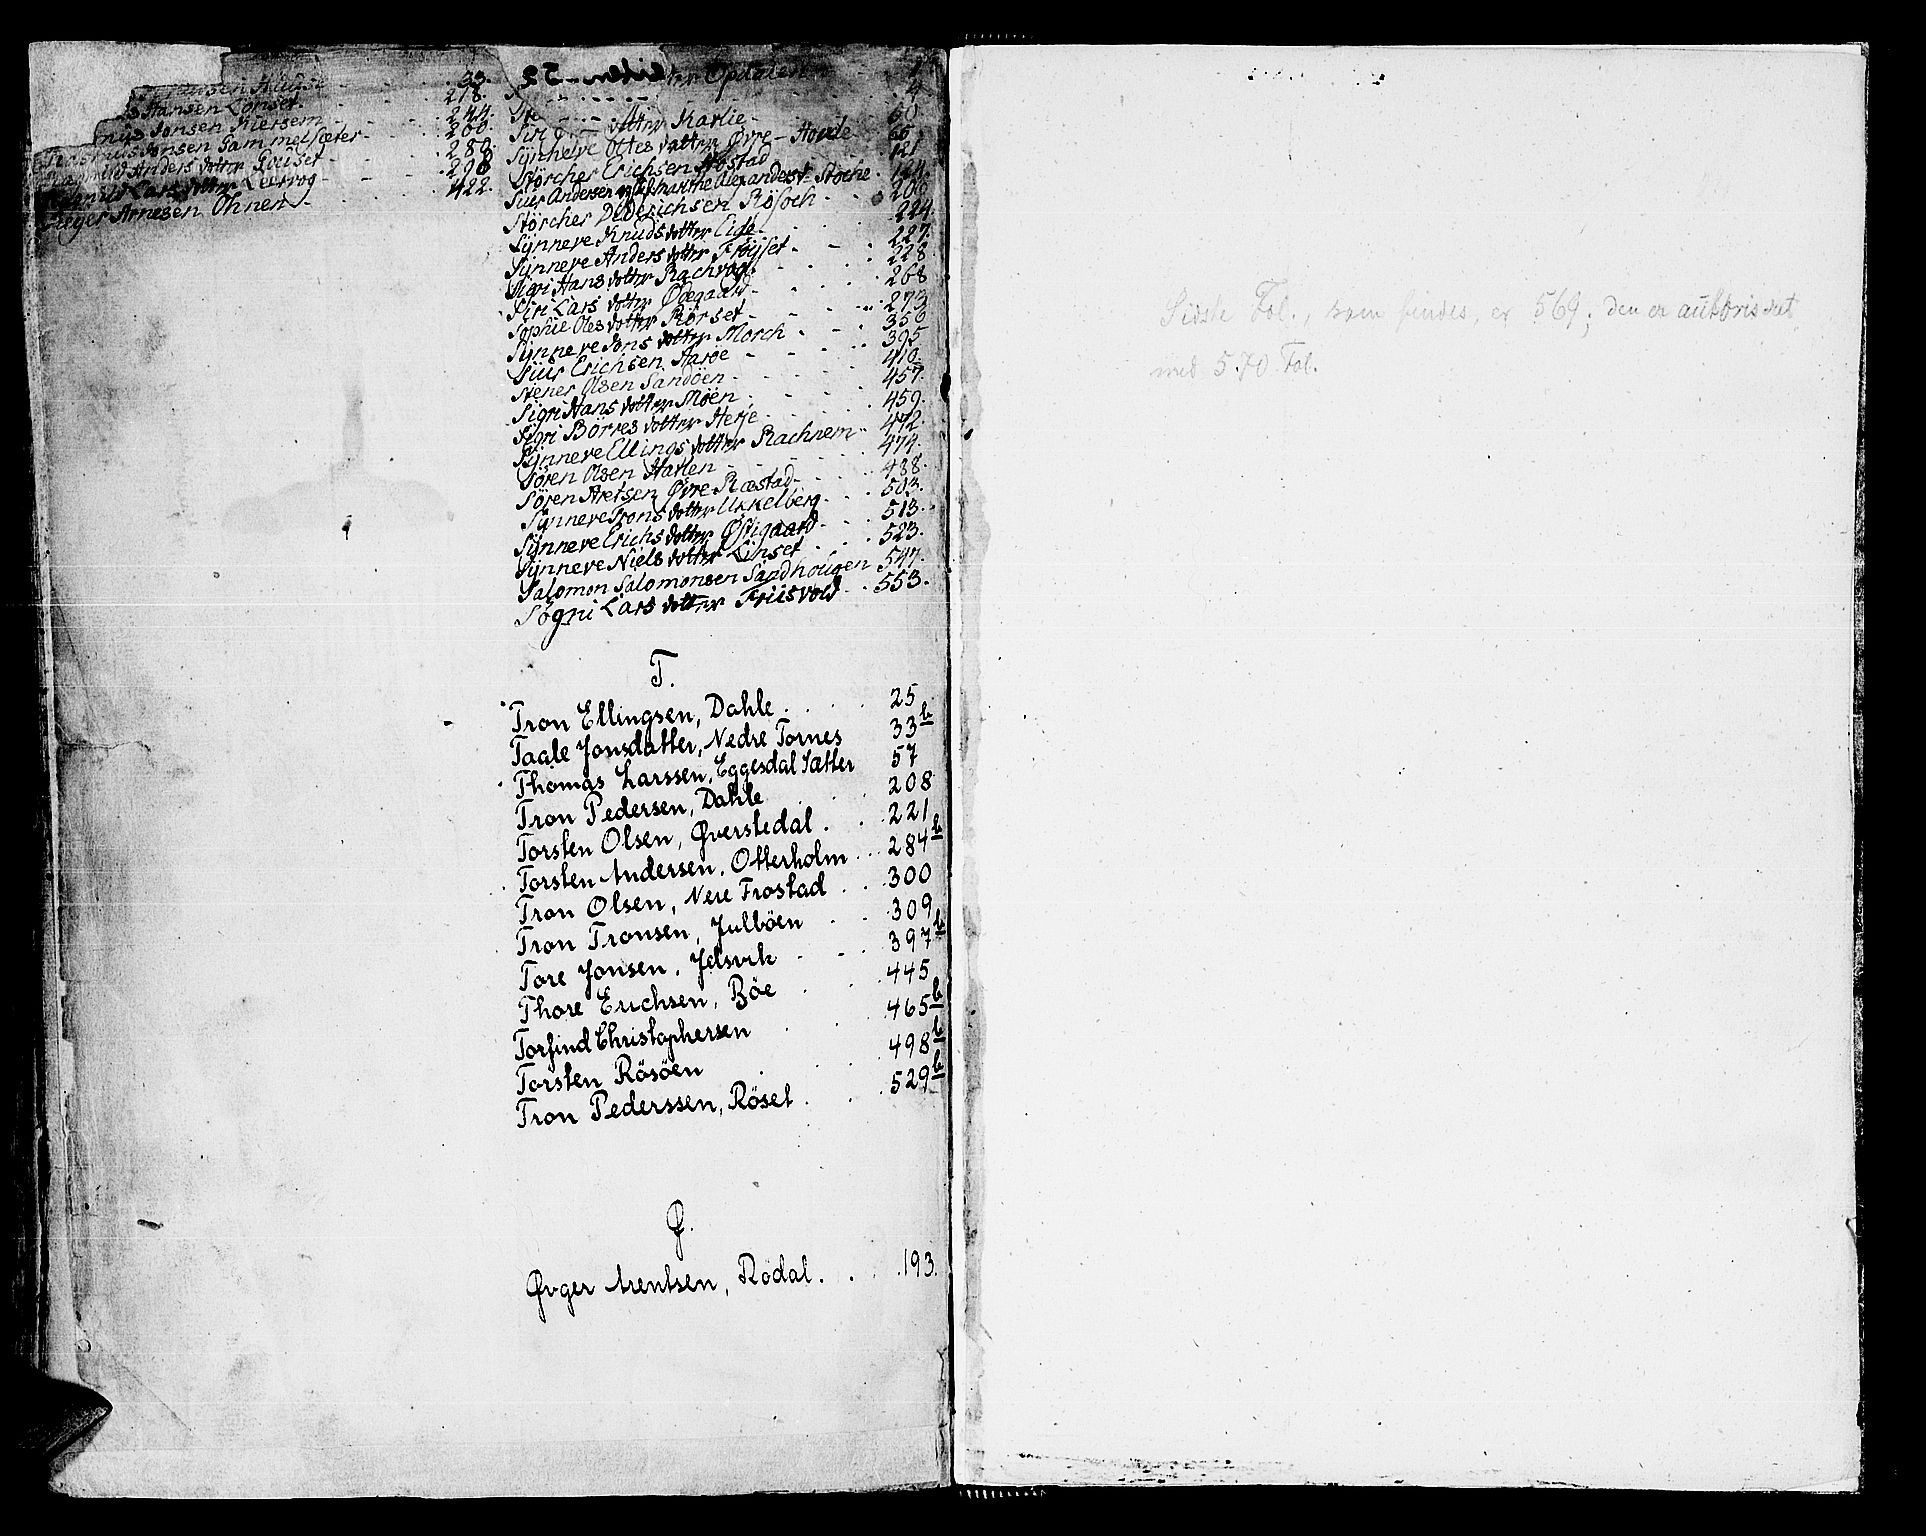 Hansen Lönset. 218.
Jonsen Kiersem 244.
Jonsen Gammelsæter 260.
Anders dotter Gouset 280.
Lars dotter Leirvog 298
Arnesen Ohnen 422.
dotter Opdalen 1
4
Siri dotter Karlie 50
Synneve Oles dotter Øvre-Hovde 65
Störcher Erichsen Hostad 121
Siur Andersen og Marthe Alexandersd. Stoche 124.
Störcher Diderichsen Rösoch 206
Synneve Knuds dotter Eide 224.
Synneve Anders dotter Fröyset 227.
Sigri Hans dotter Rachvog 228
Siri Lars dotter Ødegaard 268
Sophie Oles dotter Rörset 273
Synneve Jons dotter Morch 356
Siur Erichsen Haröe 395
Stener Olsen Sandöen 410.
Sigri Hans dotter Möen 457.
Sigri Börres dotter Herje 459.
Synneve Ellings dotter Rachnem 472.
Sören Olsen Harlen 474.
Sören Aretsen Øvre Ræstad 488.
Synneve Trons dotter Ukkelberg 503.
Synneve Erichs dotter Østigaard 513.
Synneve Niels dotter Linset 523.
Salomon Salomonsen Sandhougen 547.
Sögni Lars dotter Friisvold 553.
T.
Tron Ellingsen, Dahle 25
Taale Jonsdatter, Nedre Tornes 33 b
Thomas Larssen, Eggesdal Sætter 57
Tron Pedersen, Dahle 208
Torsten Olsen, Øverstedal 221
Torsten Andersen, Otterholm 284 b
Tron Olsen, Nere Frostad 300
Tron Tronsen, Julböen 309
Tore Jonsen, Jelsvik 397 b
Thore Erichsen, Böe 445
Torfind Christophersen 465 b
Torsten Rösöen 498 b
Tron Pederssen, Röset 529 b
Ø.
Øvger Arentsen, Rödal 193.
Sidste Fol., som findes, er 569; den er autoriseret
med 570 Fol.